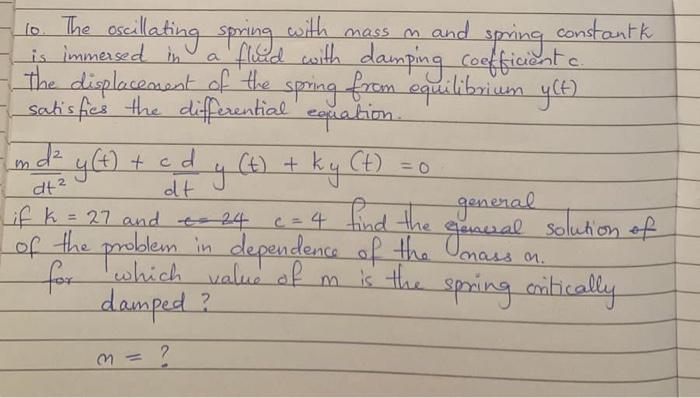 10. The oscillating spring with mass m and spring constant k
is immersed in a fluid with damping coefficient c.
The displacement of the spring from equilibrium y(t)
satisfies the differential equation.
m d²/dt² y(t) + c d/dt y(t) + ky(t) = 0
general
if k = 27 and c = 24 c = 4 find the general solution of
of the problem in dependence of the mass m.
for which value of m is the spring critically
damped ?
m = ?